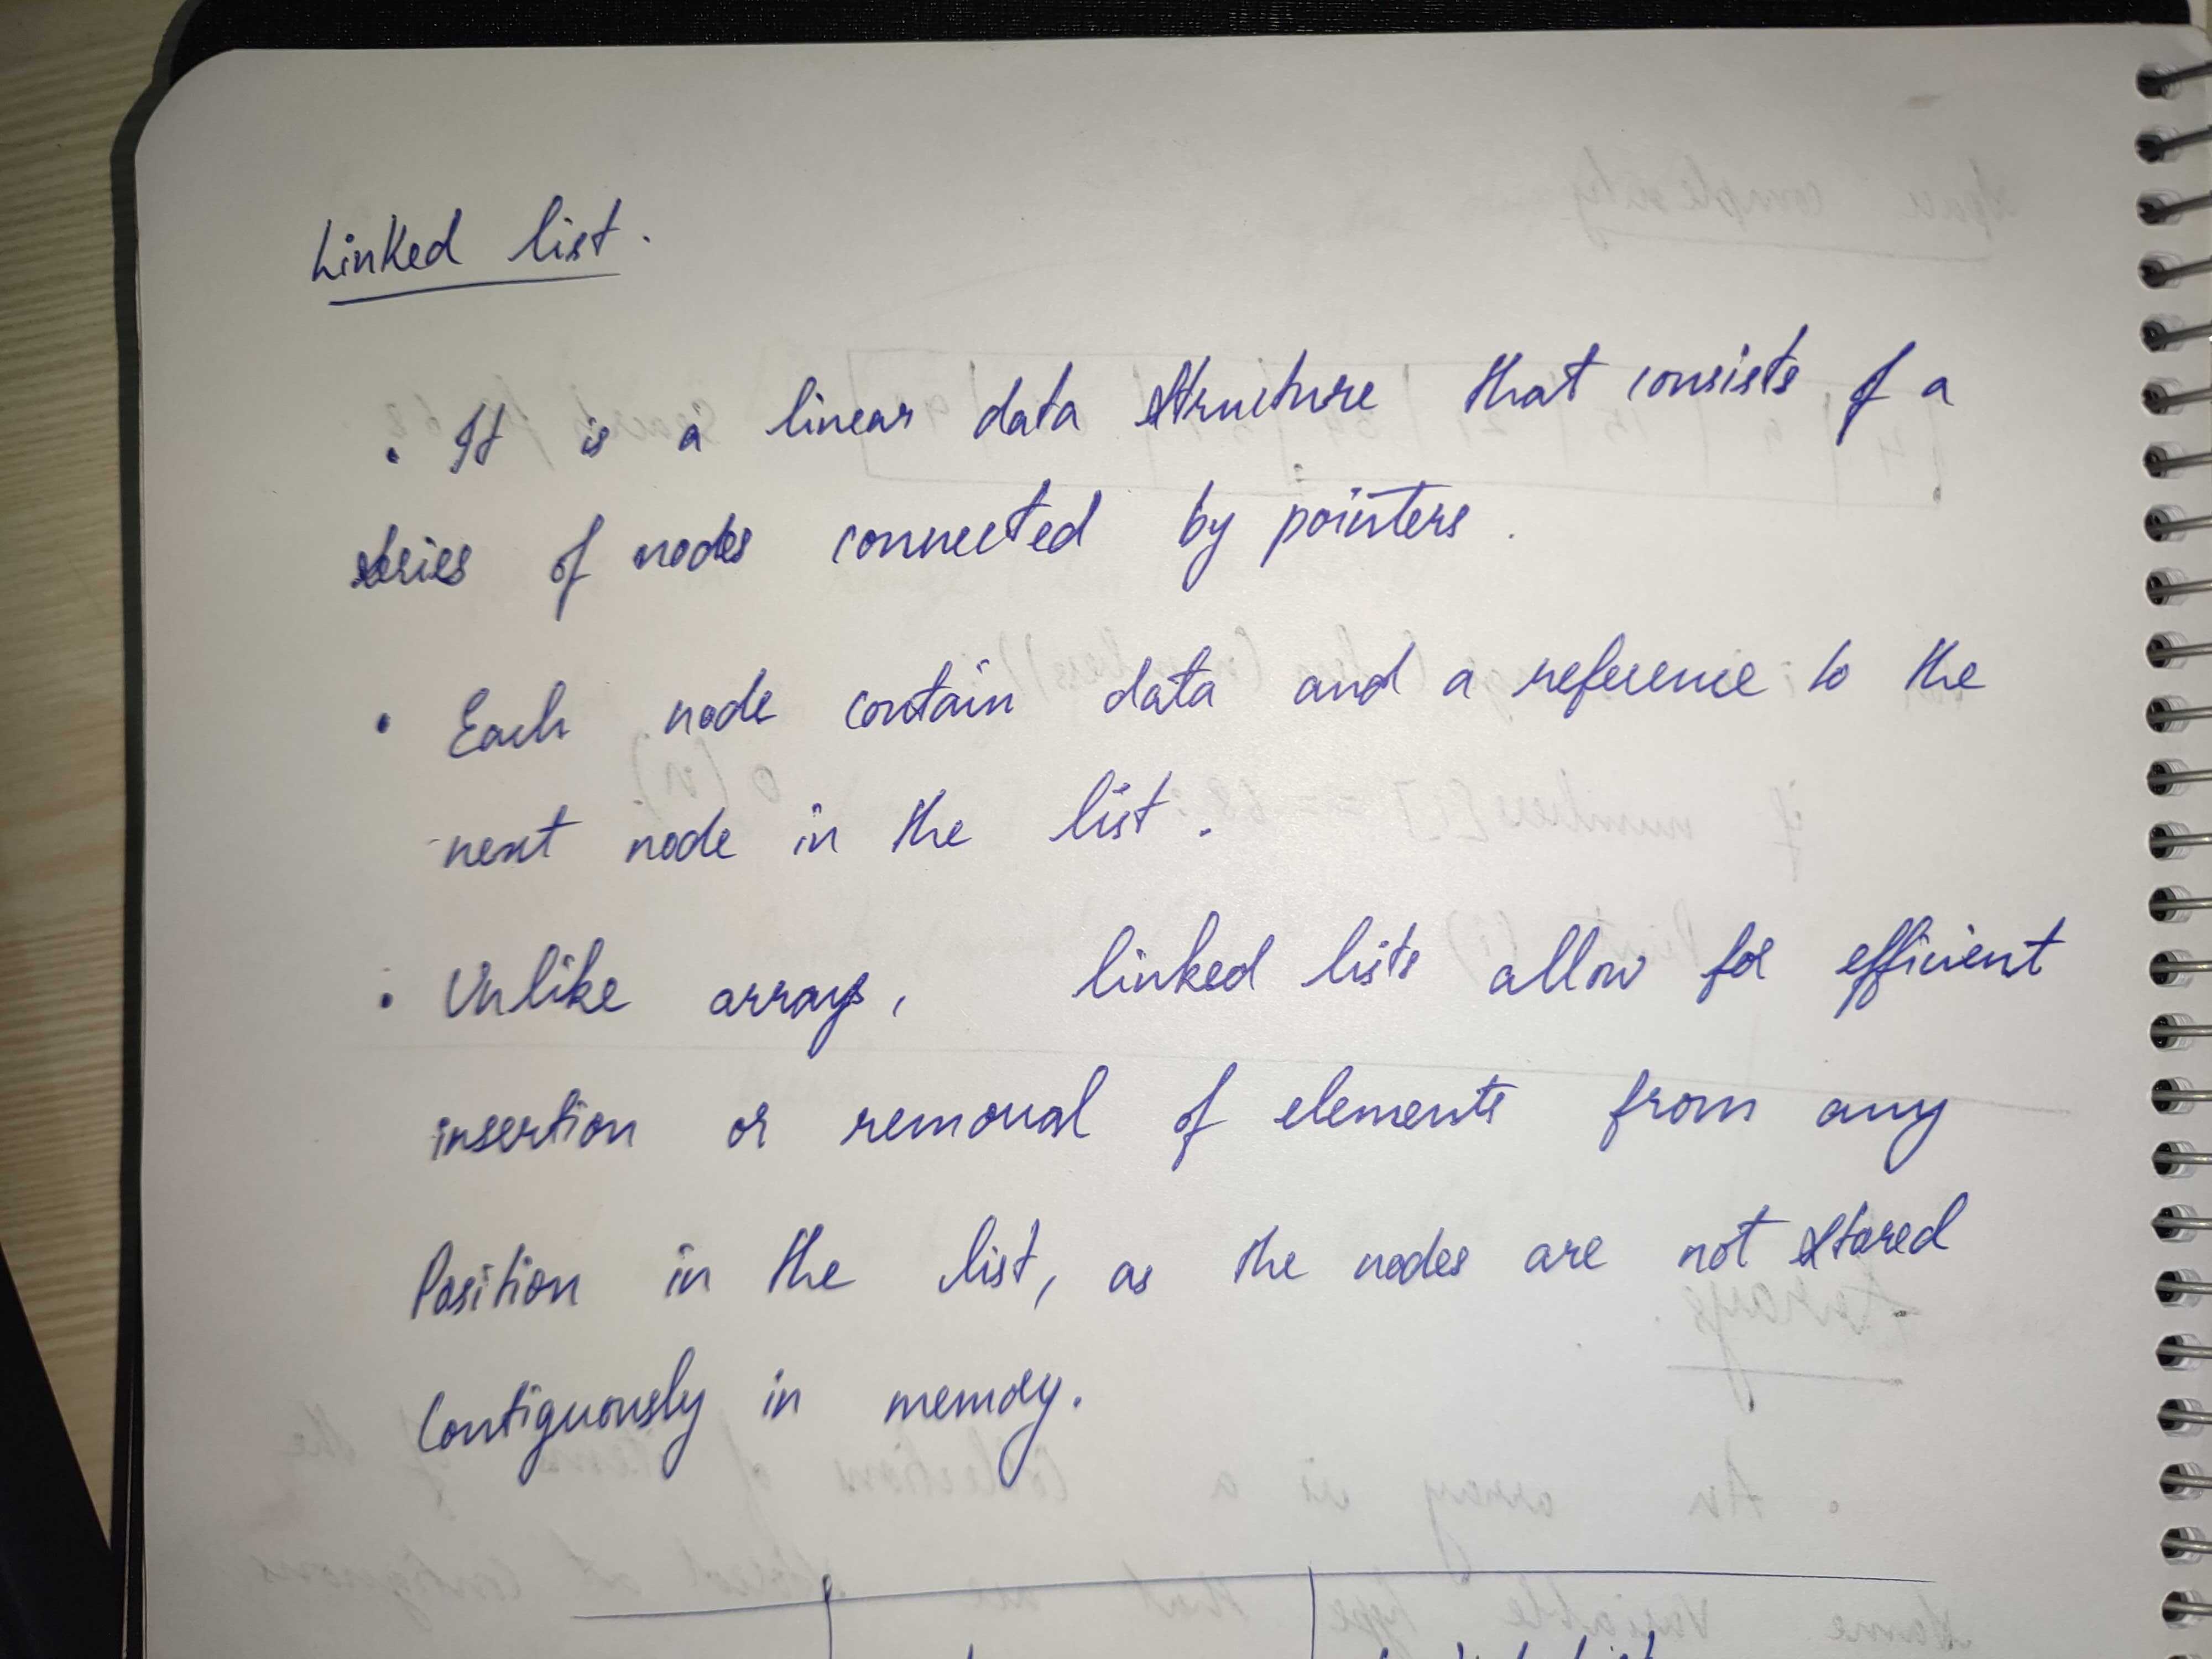 Linked list.
• It is a linear data structure that consists of a
series of nodes connected by pointers.
• Each node contain data and a reference to the
next node in the list.
• Unlike arrays, linked lists allow for efficient
insertion or removal of elements from any
Position in the list, as the nodes are not stored
Contiguously in memory.